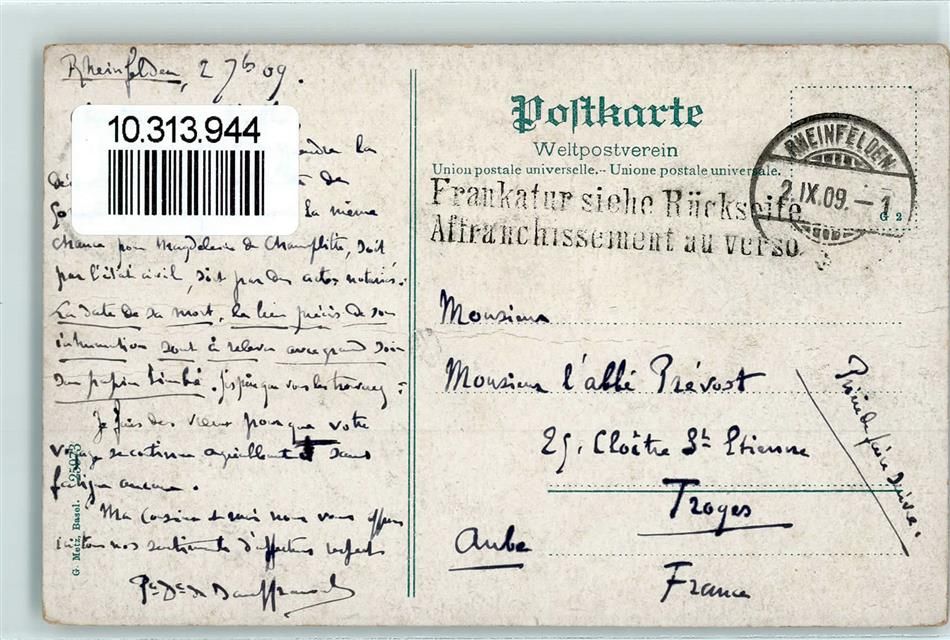 Rheinfelden, 2 7b 09.
10.313.944
la
de
la même
chance pour Magdeleine de Champlitte, soit
par l'état civil, soit par des actes notariés.
La date de sa mort, le lieu précis de son
inhumation sont à relever avec grand soin
sur papier timbré. J'espère que vous les trouverez
Je fais des vœux pour que votre
voyage se continue agréablement et sans
fatigue aucune.
Ma cousine et moi nous vous offrons
nos sentiments d'affection
G. Metz, Basel.
Postkarte
Weltpostverein
Union postale universelle. - Unione postale universale.
Frankatur siehe Rückseite
Affranchissement au verso
RHEINFELDEN
2.IX.09. - 1
G 2
Monsieur
Monsieur l'abbé Prévost
25. Cloître St Etienne
Troyes
Aube
France
Prière de faire suivre.